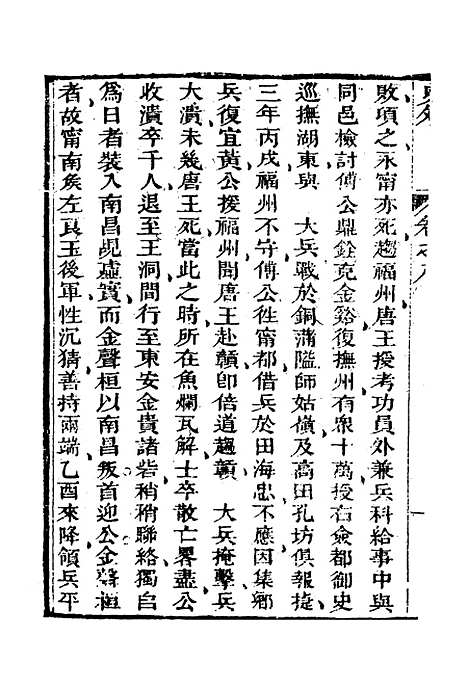 敗項之永甯亦死趨福州唐王授考功員外兼兵科給事中與
同邑檢討傅公鼎銓克金谿復撫州有衆十萬授右僉都御史
巡撫湖東與　大兵戰於銅蒲隘師姑嶺及高田孔坊俱報捷
三年丙戌福州不守傅公徃甯都借兵於田海忠不應因集鄉
兵復宜黃公援福州聞唐王赴贛卽倍道趨贛　大兵掩擊兵
大潰未幾唐王死當此之時所在魚爛瓦解士卒散亡畧盡公
收潰卒千人退至王洞間行至東安金貴諸砦稍稍聯絡獨自
爲日者裝入南昌覘虛實而金聲桓以南昌叛首迎公金聲桓
者故甯南矦左良玉後軍性沉猜善持兩端乙酉來降領兵平